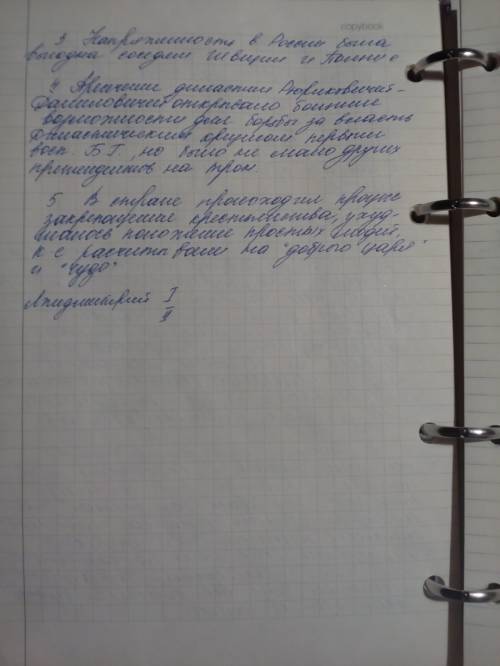 copybook
3 Напряжённость в России была
выгодна соседям Швеции и Польше
4 Пресечение династии Рюриковичей -
Даниловичей открывало большие
возможности для борьбы за власть
Династическим кризисом первым
восп. Б.Г., но было не мало других
претендентов на трон.
5 В стране происходил процесс
закрепощения крестьянства, ухуд-
шалось положение простых людей,
к-е расчитывали на "доброго царя"
и "чудо"
Лжедмитрий I
II